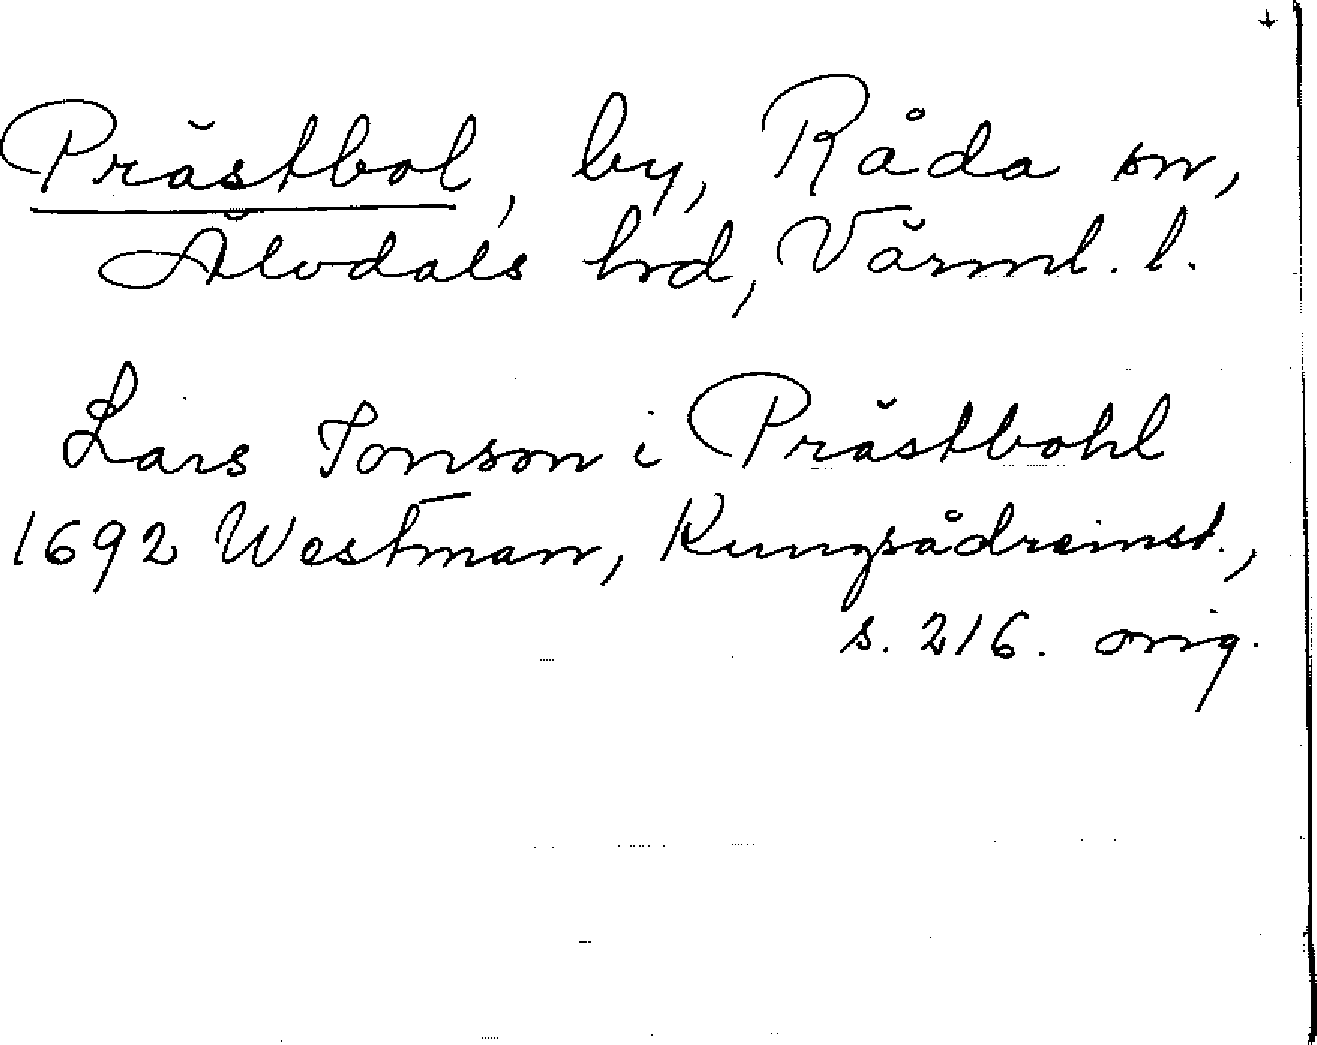 Prästbol, by, Råda sn,
Älvdals hrd, Värml. l.
Lars Jonson i Prästbohl
1692 Westman, Kungsådreinst.,
s. 216. orig.